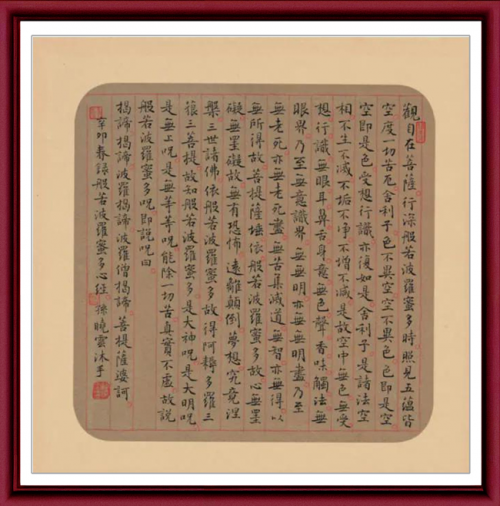 觀自在菩薩行深般若波羅蜜多時照見五蘊皆
空度一切苦厄舍利子色不異空空不異色色即是空
空即是色受想行識亦復如是舍利子是諸法空
相不生不滅不垢不淨不增不減是故空中無色無受
想行識無眼耳鼻舌身意無色聲香味觸法無
眼界乃至無意識界無無明亦無無明盡乃至
無老死亦無老死盡無苦集滅道無智亦無得以
無所得故菩提薩埵依般若波羅蜜多故心無罣
礙無罣礙故無有恐怖遠離顛倒夢想究竟涅
槃三世諸佛依般若波羅蜜多故得阿耨多羅三
藐三菩提故知般若波羅蜜多是大神咒是大明咒
是無上咒是無等等咒能除一切苦真實不虛故說
般若波羅蜜多咒即說咒曰
揭諦揭諦波羅揭諦波羅僧揭諦 菩提薩婆訶
辛卯春録般若波羅蜜多心經 孫曉雲沐手